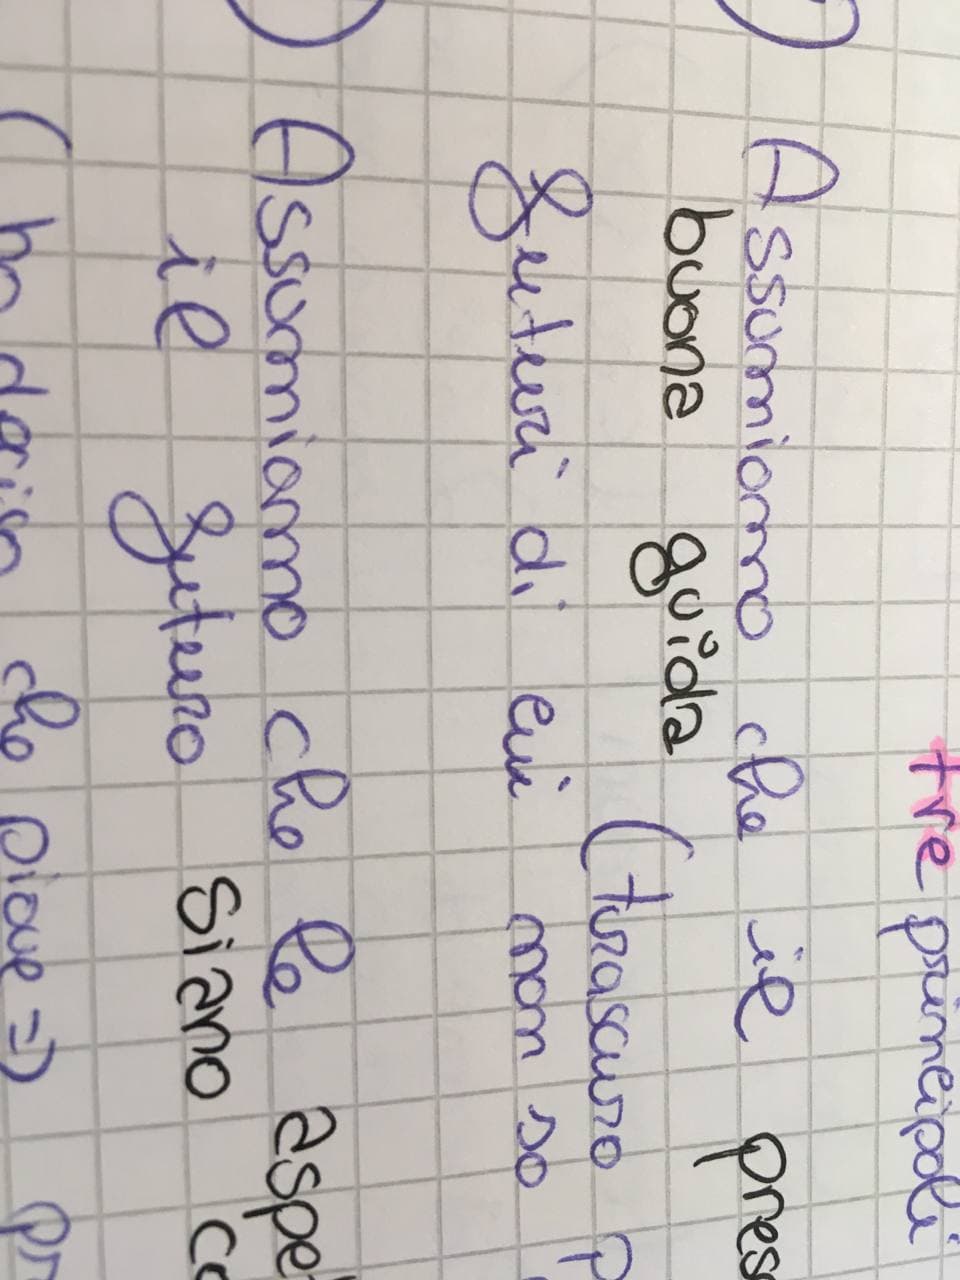 tre principali
Assumiamo che il pres
buona guida
(trascuro p
futuri di cui non so
Assumiamo che le aspet
il futuro siano co
(ho deciso che piove => pr